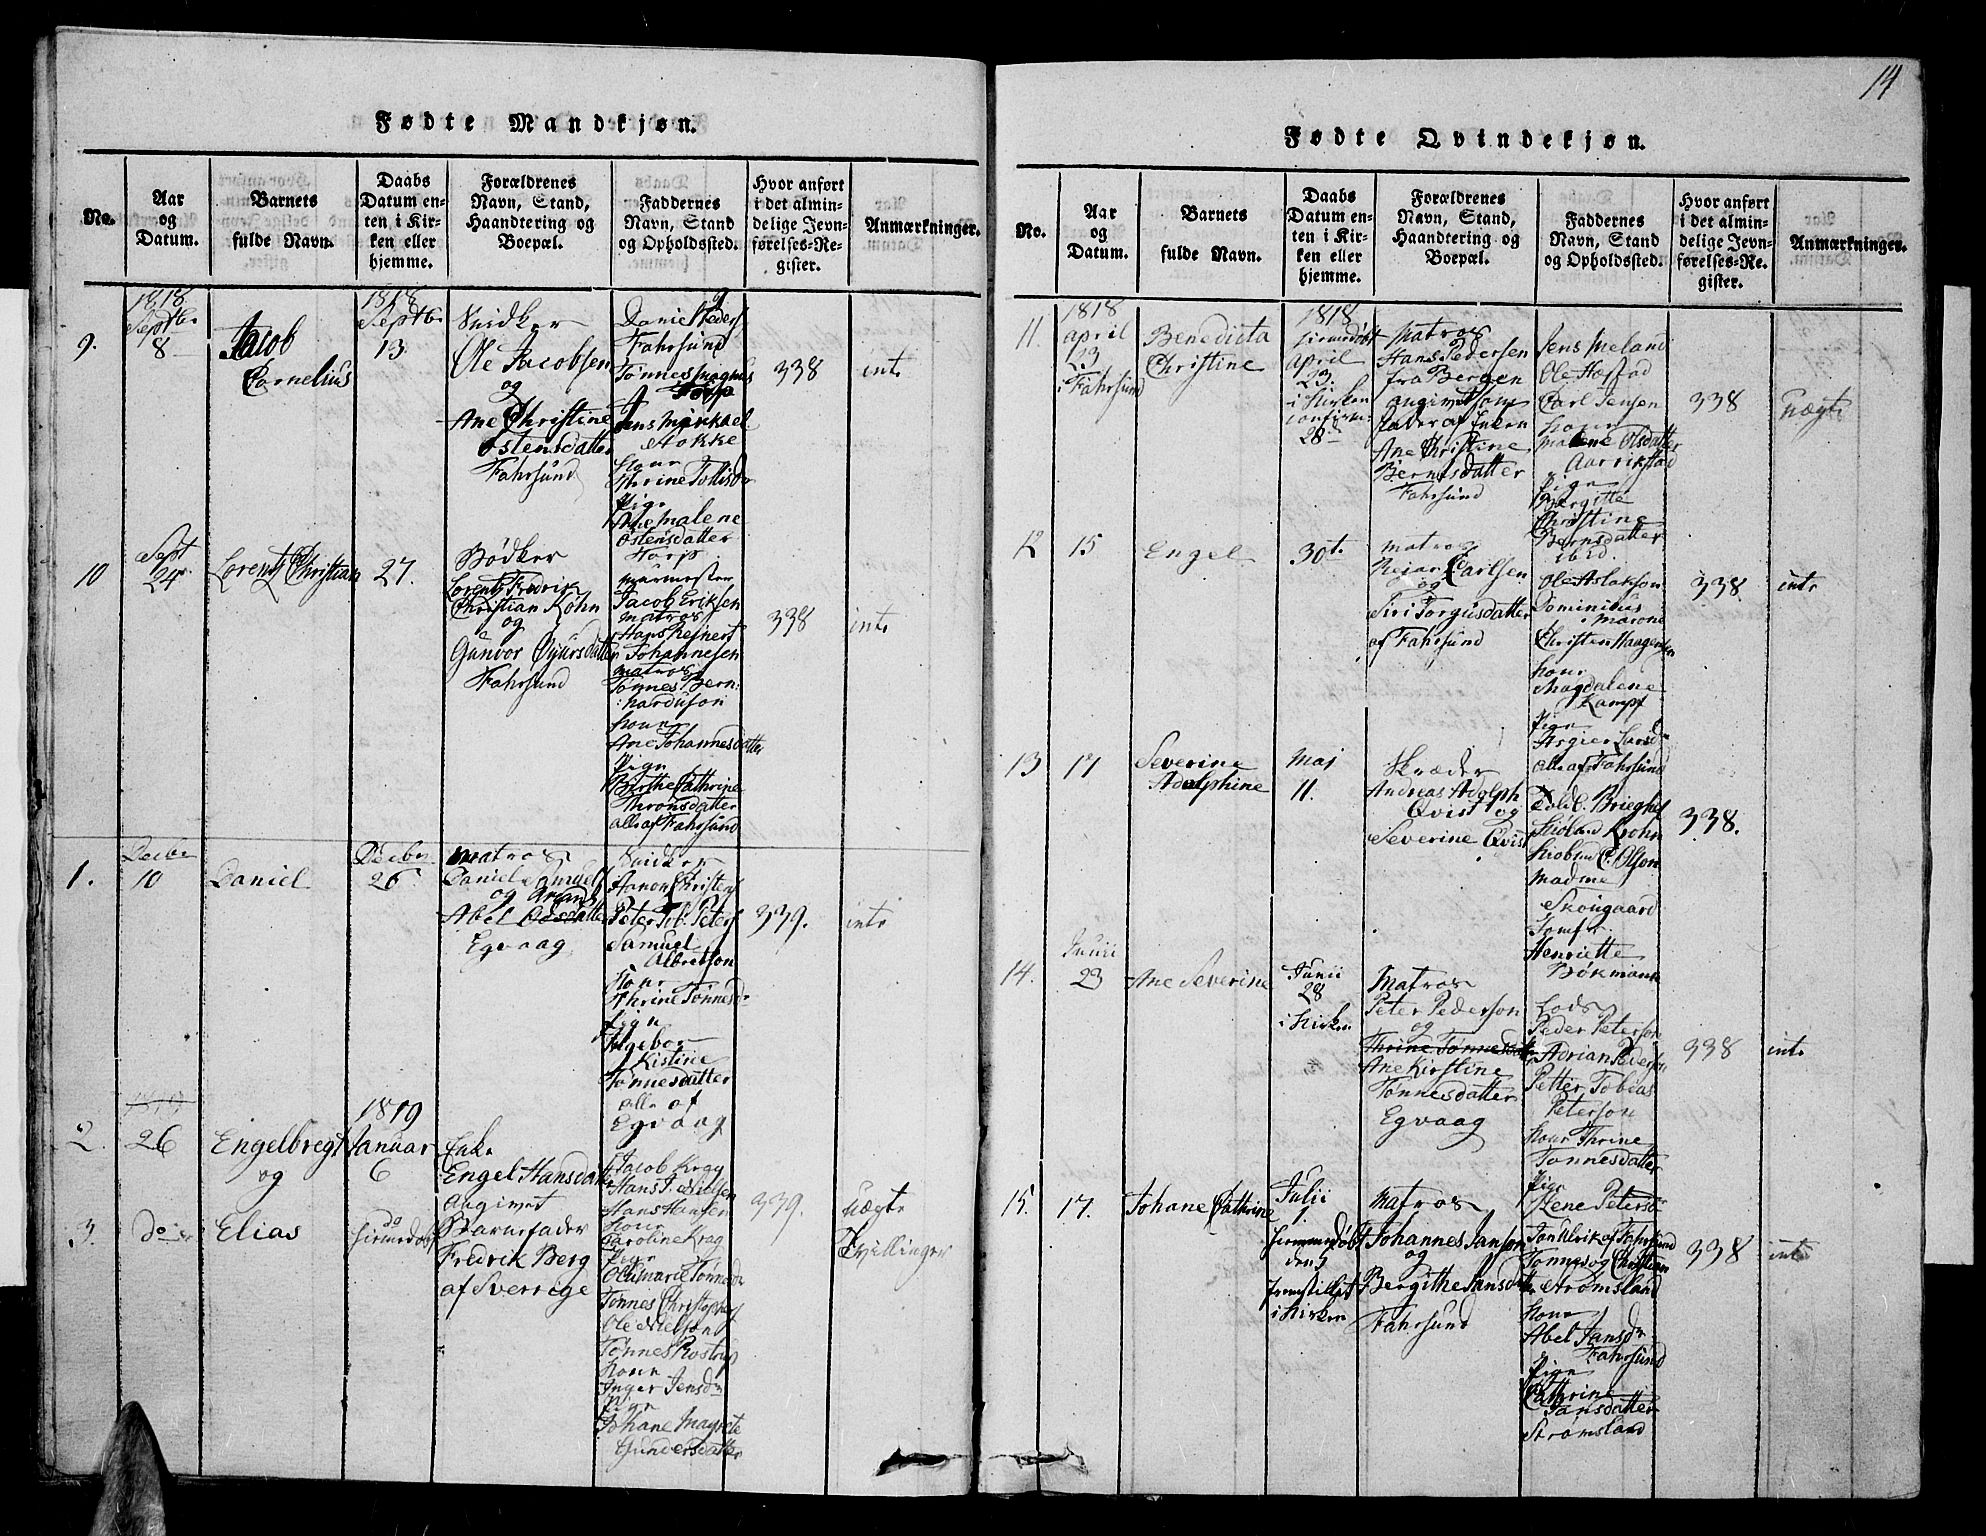 Fødte Mandkjøn.
No.
Aar
og
Datum.
Barnets
fulde Navn.
Daabs
Datum en-
ten i Kir-
ken eller
hjemme.
Forældrenes
Navn, Stand,
Haandtering og
Boepæl.
Faddernes
Navn, Stand
og Opholdssted.
Hvor anført
i det almin-
delige Jevn-
førelses-Re-
gister.
Anmærkninger.
9.
1818
Septbr
8
Jacob
Cornelius
1818
Septbr
13
Snidker
Ole Jacobsen
og
Ane Christine
Ostensdatter
Fahrsund
Daniel Peders
Fahrsund
Tønnes Magnus
Jens Mikkael
Stokke
Kone
Thrine
Pige
Ane Malene
Ostensdatter
Torp
338
intr
10
Sept
24
Lorents Christian
27.
Bødker
Lorents Fredrik
Christian Køhn
og
Gunvor
Fahrsund
Murmester
Jacob Eriksen
Matros
Hans Reinert
Johannesen
matros
Tønnes Bern:
:harduson
Kone
Ane Johannesdatter
Pige
Birthe Cathrine
Thronsdatter
alle af Fahrsund
338
intr
1.
Decbr
10
Daniel
Decbr
26
Matros
Daniel Samuels
og
Abel
Egvaag
Snidker
Aanon Christens
Peter Tob. Peters
Samuel
Albretson
Kone
Thrine Tønnesd
Pige
Ingebor
Kistine
Tønnesdatter
alle af
Egvaag
339.
intr
2.
1819
26
Engelbregt
og
1819
Januar
6
Enke
Engel Hansdatter
Angivet
Barnefader
Fredrik Berg
af Sverrige
Jacob Krag
Hans J. Nielsen
Hans Hansen
Kone
Caroline Krag
Pige
Olemarie Tønnesd
339.
uægte
Tvillinger
3.
do
Elias
do
hiemmedøbt
Tønnes Christophers
Ole Nielson
Tønnes Rostrup
Kone
Inger Jensd
Pige
Johane Magrete
Gundersdatter
14
Fødte Qvindekjøn.
No.
Aar
og
Datum.
Barnets
fulde Navn.
Daabs
Datum en-
ten i Kir-
ken eller
hjemme.
Forældrenes
Navn, Stand,
Haandtering og
Boepæl.
Faddernes
Navn, Stand
og Opholdssted.
Hvor anført
i det almin-
delige Jevn-
førelses-Re-
gister.
Anmærkninger.
11.
1818
April
23
i Fahrsund
Benedicta
Christine
1818
hiemmedøbt
April
23.
i Kirken
confirm:
28
Matros
Hans Pedersen
fra Bergen
angivet som
Fader af Enken
Ane Christine
Berntsdatter
Fahrsund
Jens Meland
Ole Hæstad
Carl Jensen
Kone
Malene Olsdatter
Aarrikstad
Pige
Bergitte
Christine
Bernsdatter
ibid.
338
uægte
12
15
Engel
30t.
Matros
Reiar Carlsen
og
Siri Torgusdatter
af Fahrsund
Ole Aslakson
Dominicus
Marone
Christen Haagensen
Kone
Magdalene
Kampf
Pige
Asgier Larsd
alle af Fahrsund
338
intr
13
17
Severine
Adolphine
Maj
11.
Skræder
Andreas Adolph
Qvist og
Severine Qvist
Krohn
C. Olson
Madme
Skougaard
Jomfr.
Henriette
Bøkmann
338.
14.
Junii
23
Ane Severine
Junii
28
i Kirken
Matros
Peter Pederson
og
Thrine Tønnesdatter
Ane Kirstine
Tønnesdatter
Egvaag
Lods
Peder Peterson
Adrian Peders
Petter Tobias
Peterson
Kone Thrine
Tønnesdatter
Pige
Elene Petersd
338
intr
15.
17.
Johane Cathrine
Julii
1.
hiemmedøbt
den
fremstillet
i Kirken
Matros
Johannes Janson
og
Bergithe Jansdatter
Fahrsund
Jon Ulrik af Fahrsund
Tønnes og Christian
Stromsland
Kone
Abel Jansd
Fahrsund
Pige
Cathrine
Jansdatter
Strømsland
338
intr